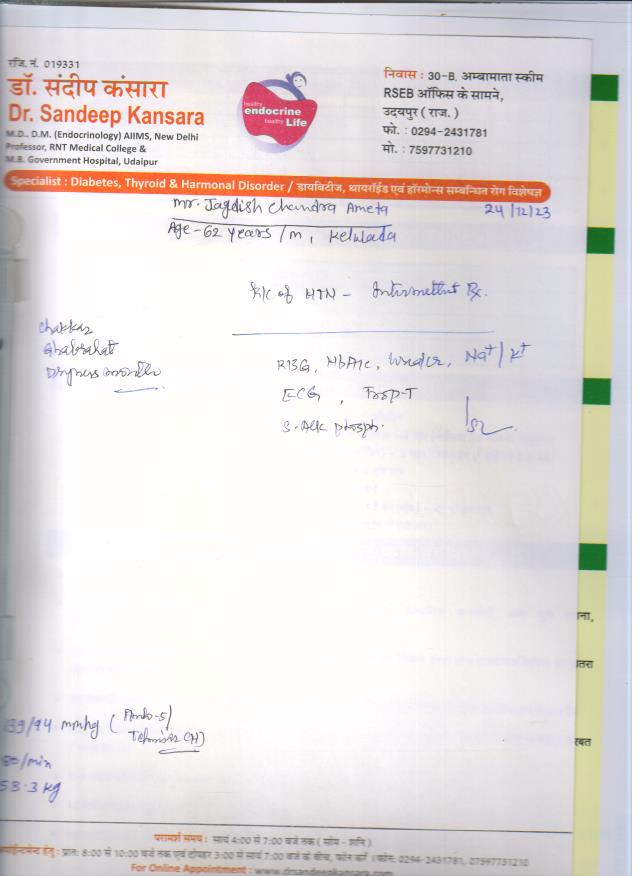 रजि. नं. 019331
डॉ. संदीप कंसारा
Dr. Sandeep Kansara
M.D., D.M. (Endocrinology) AIIMS, New Delhi
Professor, RNT Medical College &
M.B. Government Hospital, Udaipur
healthy
endocrine
healthy Life
निवास : 30-B, अम्बामाता स्कीम
RSEB ऑफिस के सामने,
उदयपुर ( राज. )
फो. : 0294-2431781
मो. : 7597731210
Specialist : Diabetes, Thyroid & Harmonal Disorder / डायबिटीज, थायरॉईड एवं हॉरमोन्स सम्बन्धित रोग विशेषज्ञ
Mr. Jagdish Chandra Ameta 24/12/23
Age - 62 years / M, Kelwada
K/c of HTN - Intermittent Rx.
Chakkar
Ghabrahat
Dryness mouth
RBG, HbA1c, Urea/cr, Na+/K+
ECG, Trop-T
S. Alk phosph.
ना,
तरा
रबत
139/94 mmhg (Amlo-5/
80/min
58.3 kg
परामर्श समय : सायं 4:00 से 7:00 बजे तक ( सोम - शनि )
प्रात: 8:00 से 10:00 बजे तक एवं दोपहर 3:00 से सायं 7:00 बजे के बीच, फोन करें । फोन: 0294-2431781, 07597731210
For Online Appointment : www.drsandeepkansara.com